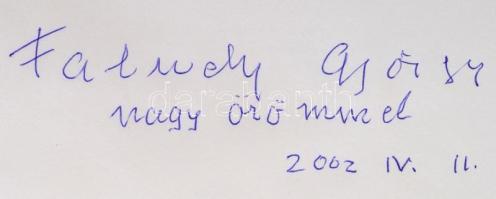 Faludy György
nagy örömmel
2002 IV. 11.